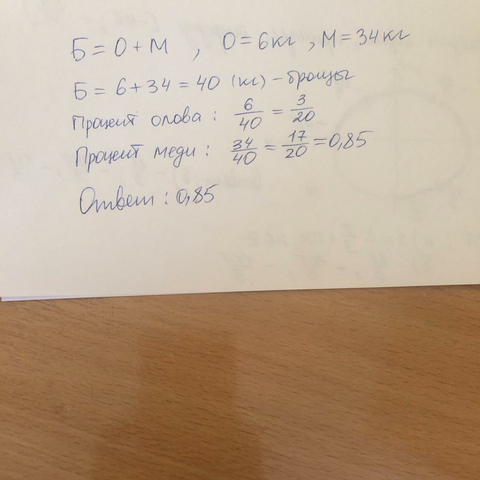 Б = О + М , О = 6кг , М = 34кг
Б = 6 + 34 = 40 (кг) – бронзы
Процент олова : 6/40 = 3/20
Процент меди : 34/40 = 17/20 = 0,85
Ответ : 0,85